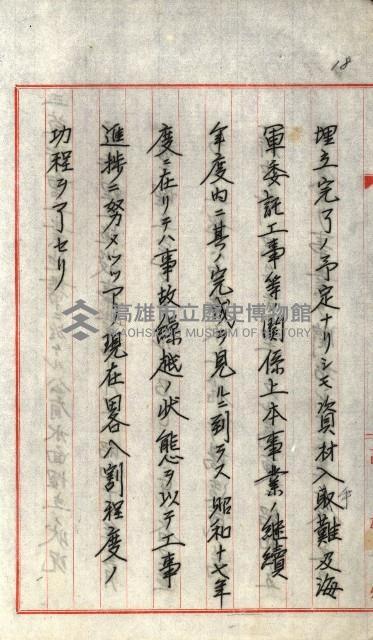 18
埋立完了ノ予定ナリシモ資材入取難及海
軍委託工事等関係上本事業ノ継續
年度内ニ其ノ完成ヲ見ルニ到ラス昭和十七年
度ニ在リテハ事故繰越ノ状態ヲ以テ工事
進捗ニ努メツツアリ現在畧八割程度ノ
功程ヲ了セリ
高雄市立歷史博物館
KAOHSIUNG MUSEUM OF HISTORY